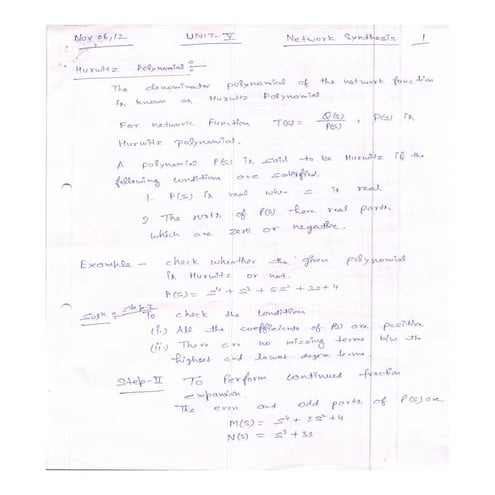 Nov 06, 12 UNIT-V Network Synthesis 1
Hurwitz Polynomial :-
The denominator polynomial of the network function
is known as Hurwitz Polynomial
For network Function T(s) = Q(s)/P(s) , P(s) is
Hurwitz polynomial.
A polynomial P(s) is said to be Hurwitz if the
following condition are satisfied.
1. P(s) is real when s. is real
2. The roots of P(s) have real parts
which are zero or negative.
Example - check wheather the given polynomial
is Hurwitz or not.
P(s) = s⁴ + s³ + 5s² + 3s + 4
Step-I
To check the condition
(i.) All the coefficients of P(s) are positive
(ii.) There are no missing terms b/w the
highest and lowest degree terms.
Step-II To Perform continued fraction
expansion.
The even and odd parts of P(s) are
M(s) = s⁴ + 5s² + 4
N(s) = s³ + 3s